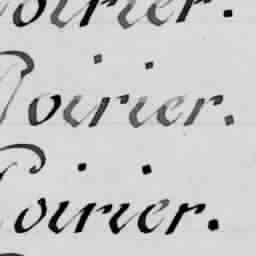 Poirier.
Poirier.
Poirier.